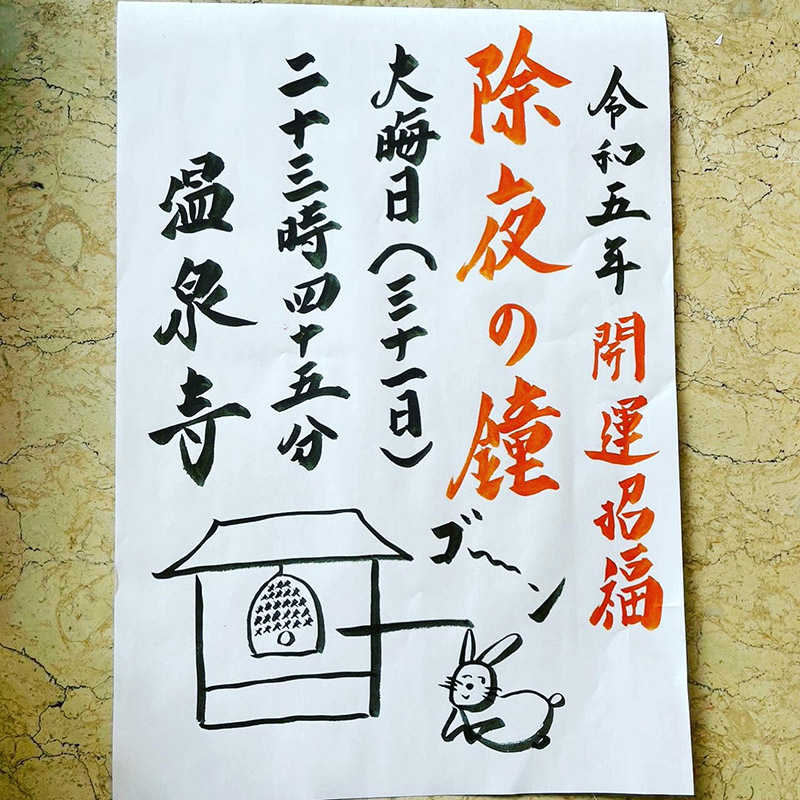 令和五年 開運招福
除夜の鐘
大晦日(三十一日)
二十三時四十五分
温泉寺
ゴ〜ン